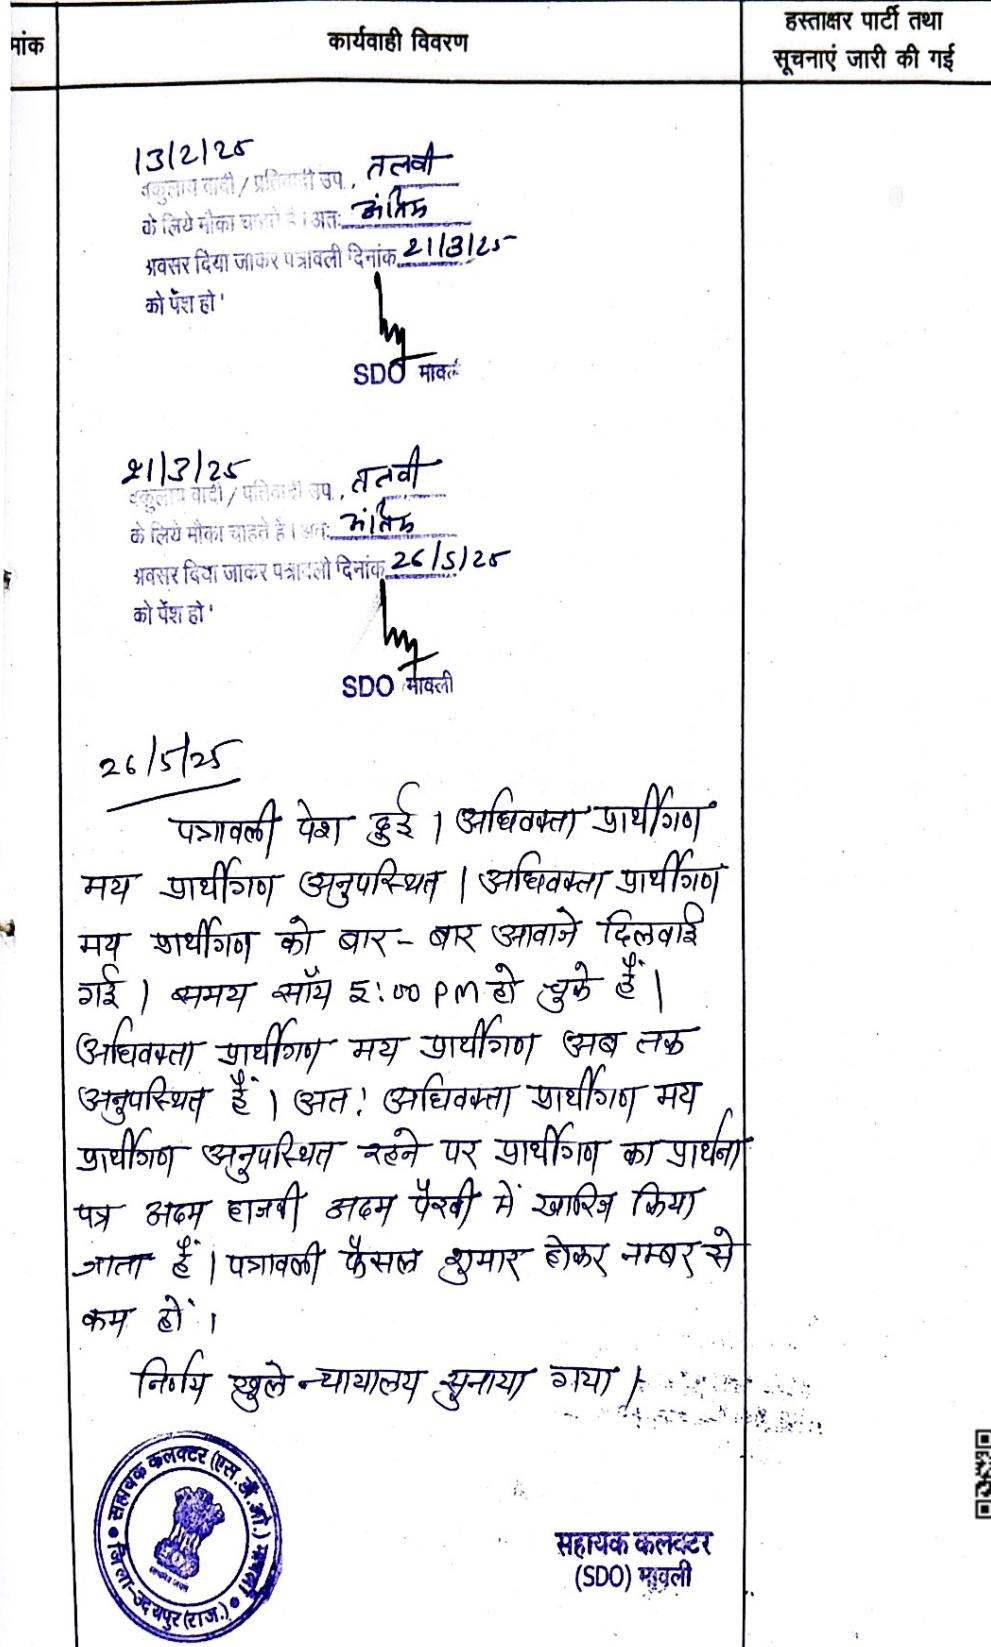 मांक
कार्यवाही विवरण
हस्ताक्षर पार्टी तथा
सूचनाएं जारी की गई
13/2/25
वकुलाय वादी / प्रतिवादी उप., तलवी
के लिये मौका चाहते है । अतः अंतिम
अवसर दिया जाकर पत्रावली दिनांक 21/3/25
को पेंश हो '
SDO मावली
21/3/25
वकुलाय वादी / प्रतिवादी उप., तलवी
के लिये मौका चाहते है । अतः अंतिम
अवसर दिया जाकर पत्रावली दिनांक 26/5/25
को पेंश हो '
SDO मावली
26/5/25
पत्रावली पेश हुई । अधिवक्ता प्रार्थीगण
मय प्रार्थीगण अनुपस्थित । अधिवक्ता प्रार्थीगण
मय प्रार्थीगण को बार - बार आवाजे दिलवाई
गई । समय साँय 5:00 PM हो चुके हैं ।
अधिवक्ता प्रार्थीगण मय प्रार्थीगण अब तक
अनुपस्थित हैं । अतः अधिवक्ता प्रार्थीगण मय
प्रार्थीगण अनुपस्थित रहने पर प्रार्थीगण का प्रार्थना
पत्र अदम हाजरी अदम पैरवी में खारिज किया
जाता हैं । पत्रावली फैसल शुमार होकर नम्बर से
कम हों ।
निर्णय खुले न्यायालय सुनाया गया ।
सहायक कलक्टर (एस.डी.ओ.) मावली
जिला-उदयपुर (राज.)
सहायक कलक्टर
(SDO) मावली